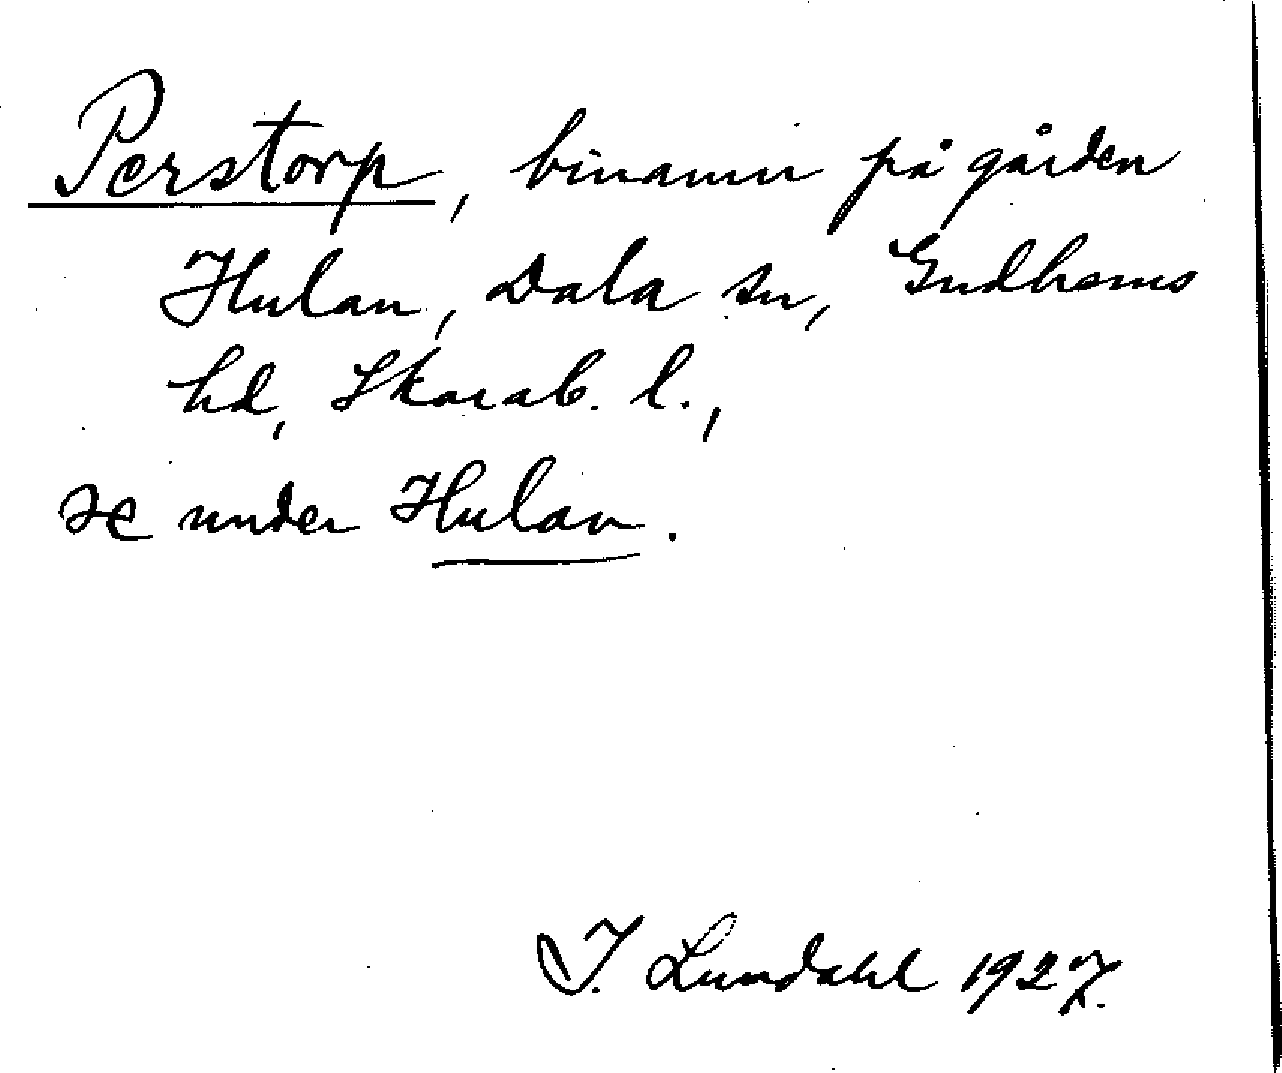 Perstorp, binamn på gården
Hulan, Dala sn, Gudhems
hd, Skarab. l.,
se under Hulan.
I. Lundahl 1927.